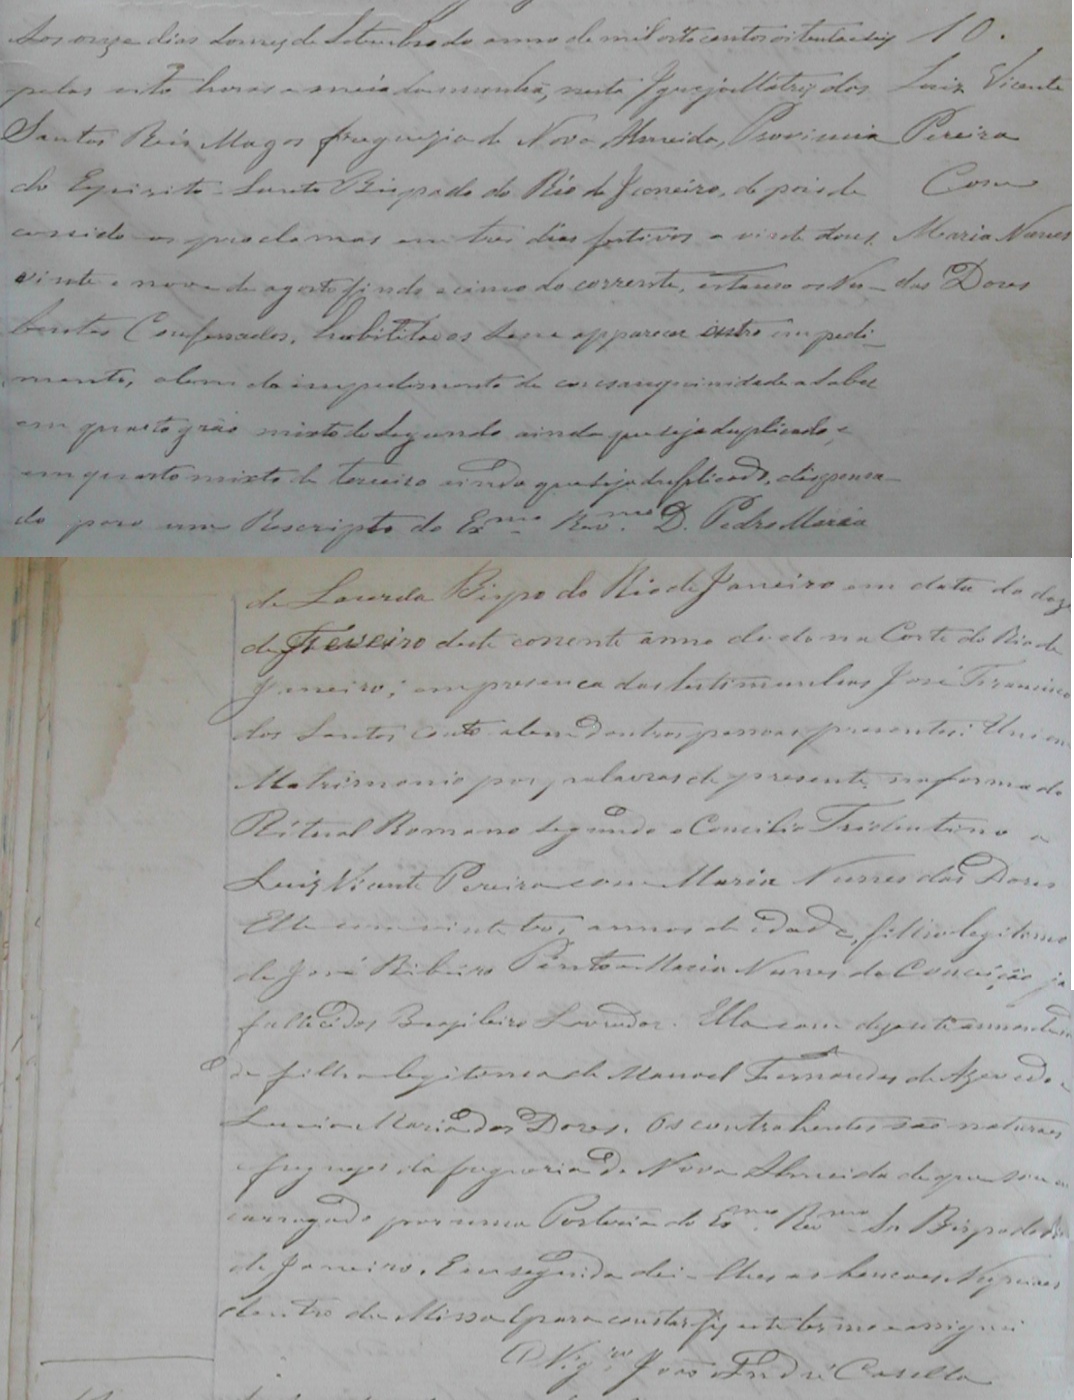 Aos onze dias do mez de Setembro do anno de mil oito centos oitenta e seis 10.
pelas oito horas e meia da manhã, nesta Igreja Matriz dos Luiz Vicente
Santos Reis Magos freguezia de Nova Almeida, Provincia Pereira
do Espirito-Santo Bispado do Rio de Janeiro, depois de Com
corrido os proclamas em tres dias festivos a vinte dous, Maria Nunes
vinte e nove de agosto findo e cinco do corrente, estando os Nu- das Dores
bentes Confessados, habilitados sem apparecer outro impedi-
mento, alem do impedimento de consanguinidade a saber
em quarto gráo mixto de segundo ainda que seja duplicado, e
em quarto mixto de terceiro ainda que seja duplicado, dispensa-
do para um Rescripto do Exmo Revmo. D. Pedro Maria
de Lacerda Bispo do Rio de Janeiro em data do doze
de Fevereiro deste corrente anno dado na Corte do Rio de
Janeiro; em presença das testimunhas José Francisco
dos Santos, Couto alem doutras pessoas presentes: Uni em
Matrimonio por palavras de presente, na forma do
Ritual Romano segundo o Concilio Tridentino a
Luiz Vicente Pereira com Maria Nunes das Dores
Elle com vinte tres annos de idade, filho legitimo
de José Ribeiro Pinto e Maria Nunes da Conceição já
fallecidos Brazileiro Lavrador. Ella com dezesete annos
de filha legitima de Manoel Fernandes de Azevedo e
Lucia Maria das Dores. Os contrahentes são naturaes
e freguezes da freguezia de Nova Almeida de que sou en
carregado por uma Portaria do Exmo. Revmo Sr Bispo do Rio
de Janeiro. Em seguida dei-lhes as bençaos Nupciaes
dentro da Missa E para constar fiz este termo e assignei
O Vigro João André Casella